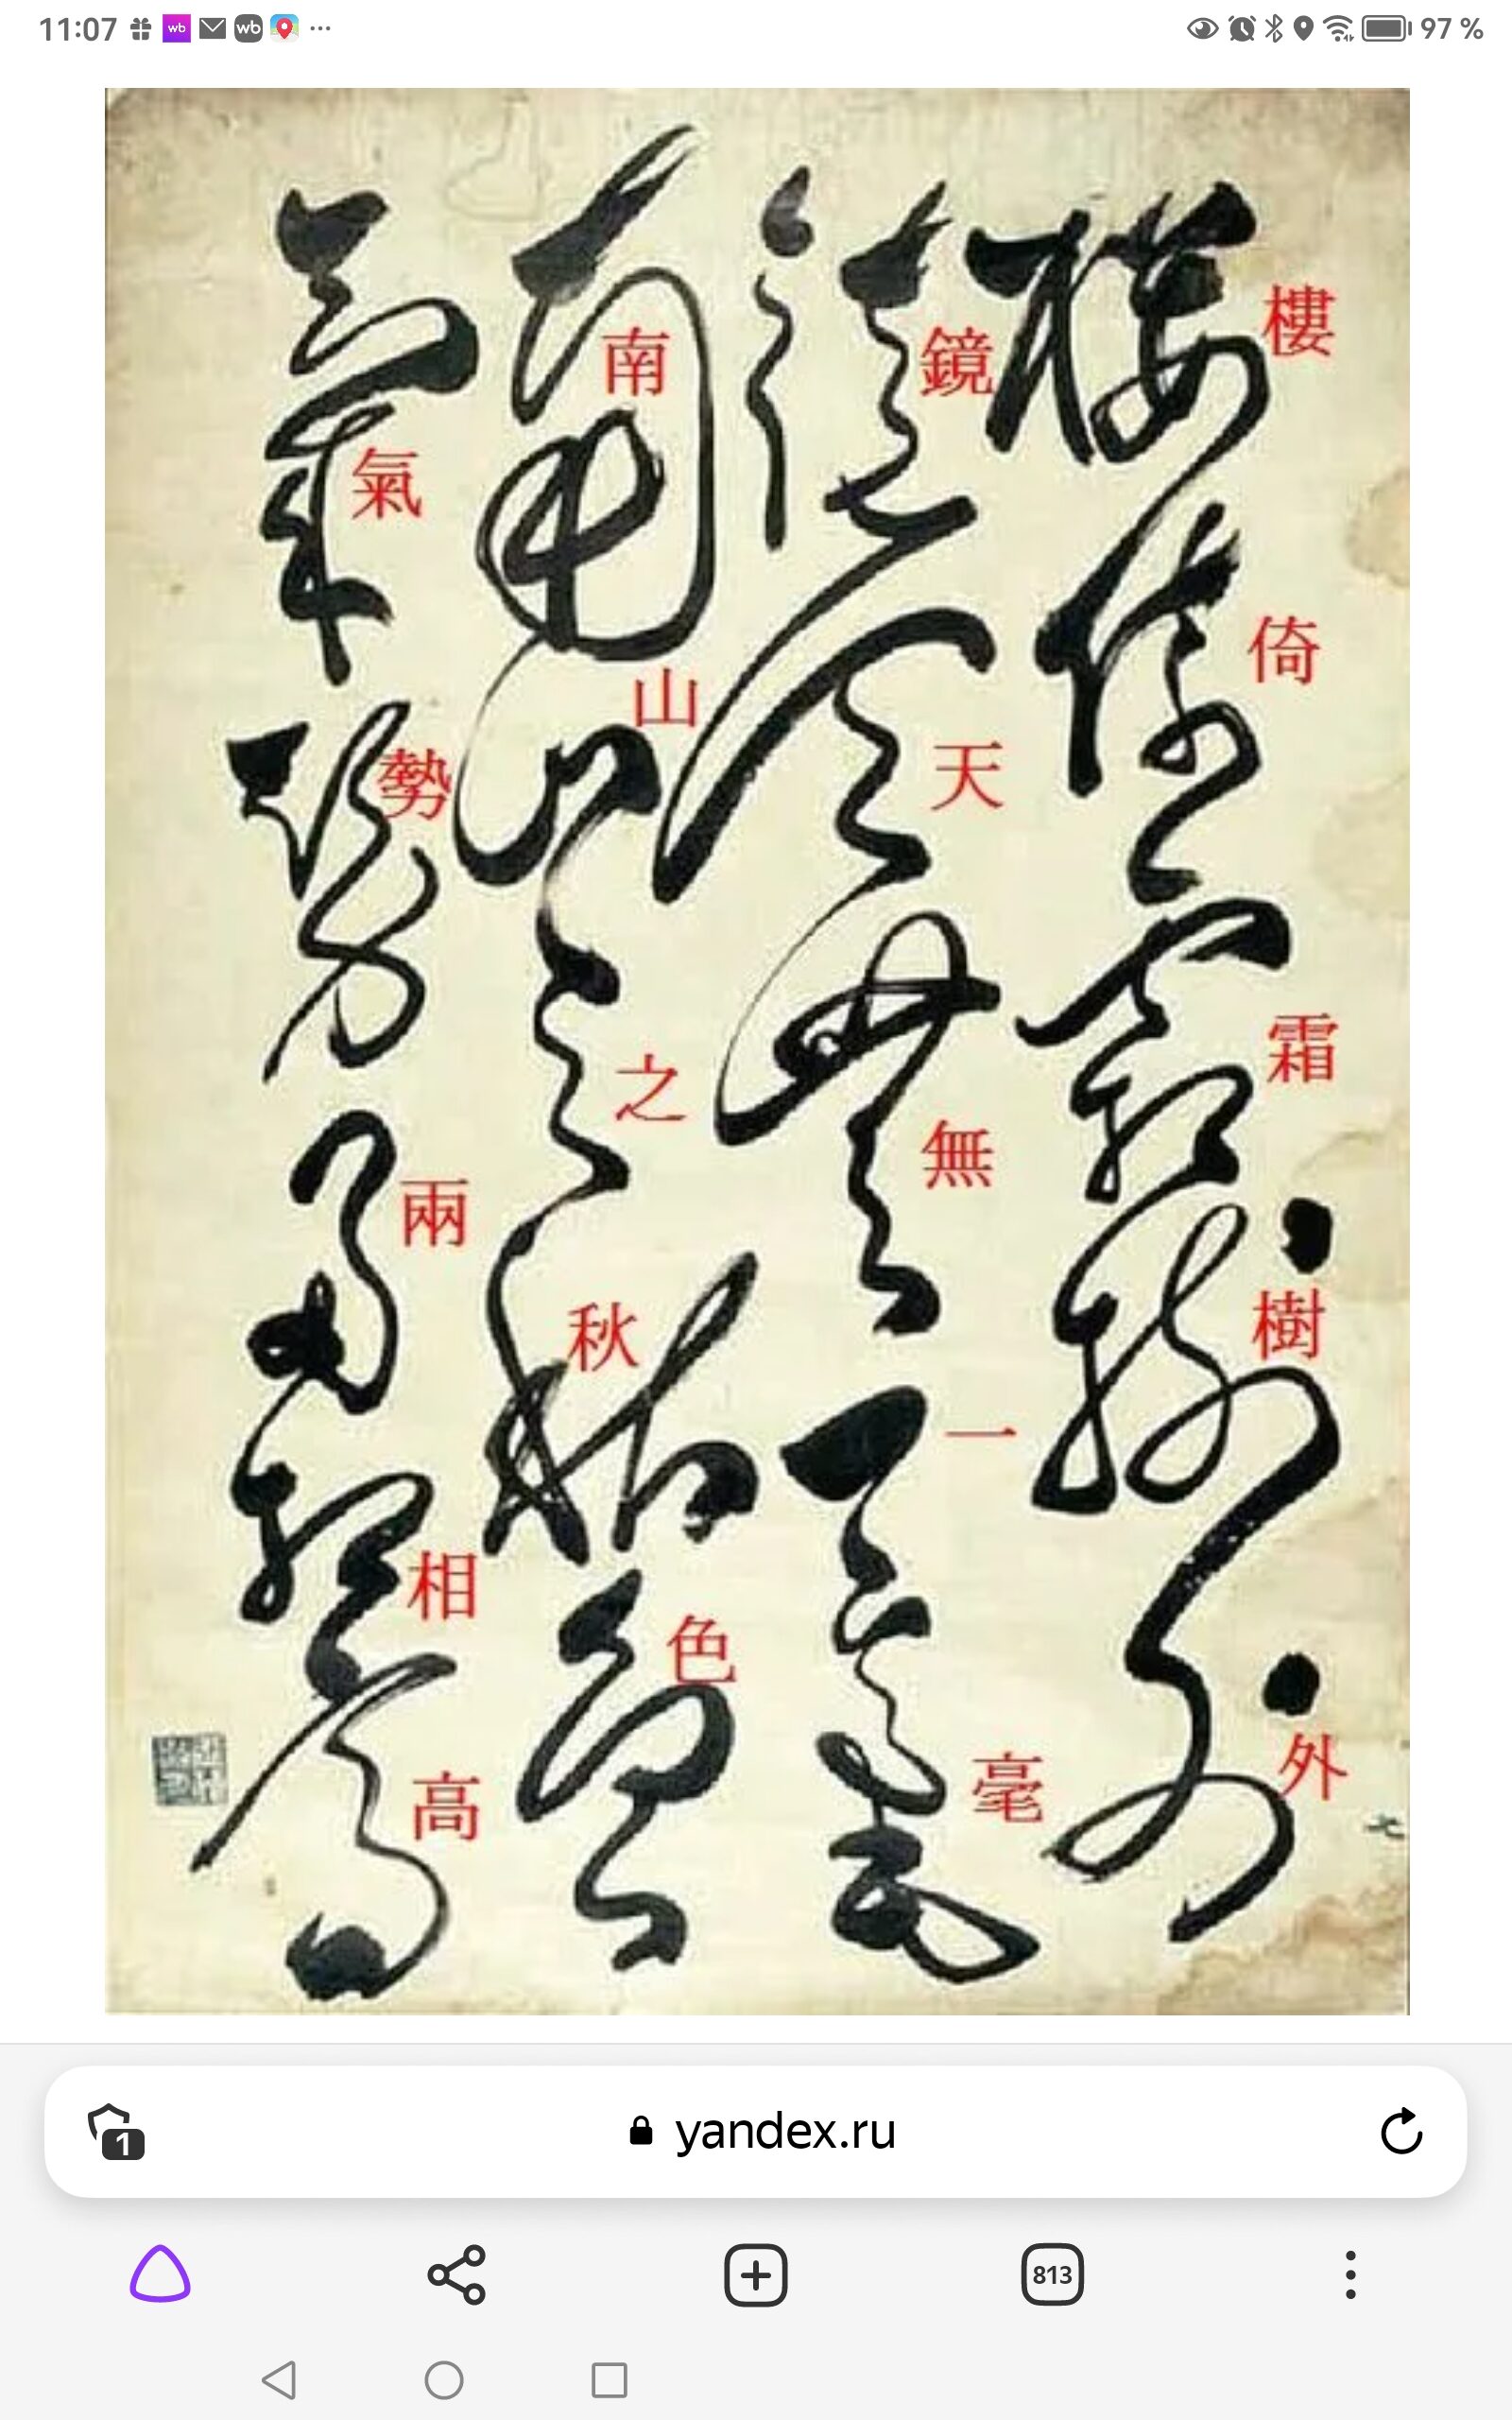 11:07
97 %
樓倚霜樹外
鏡天無一毫
南山之秋色
氣勢兩相高
yandex.ru
1
813